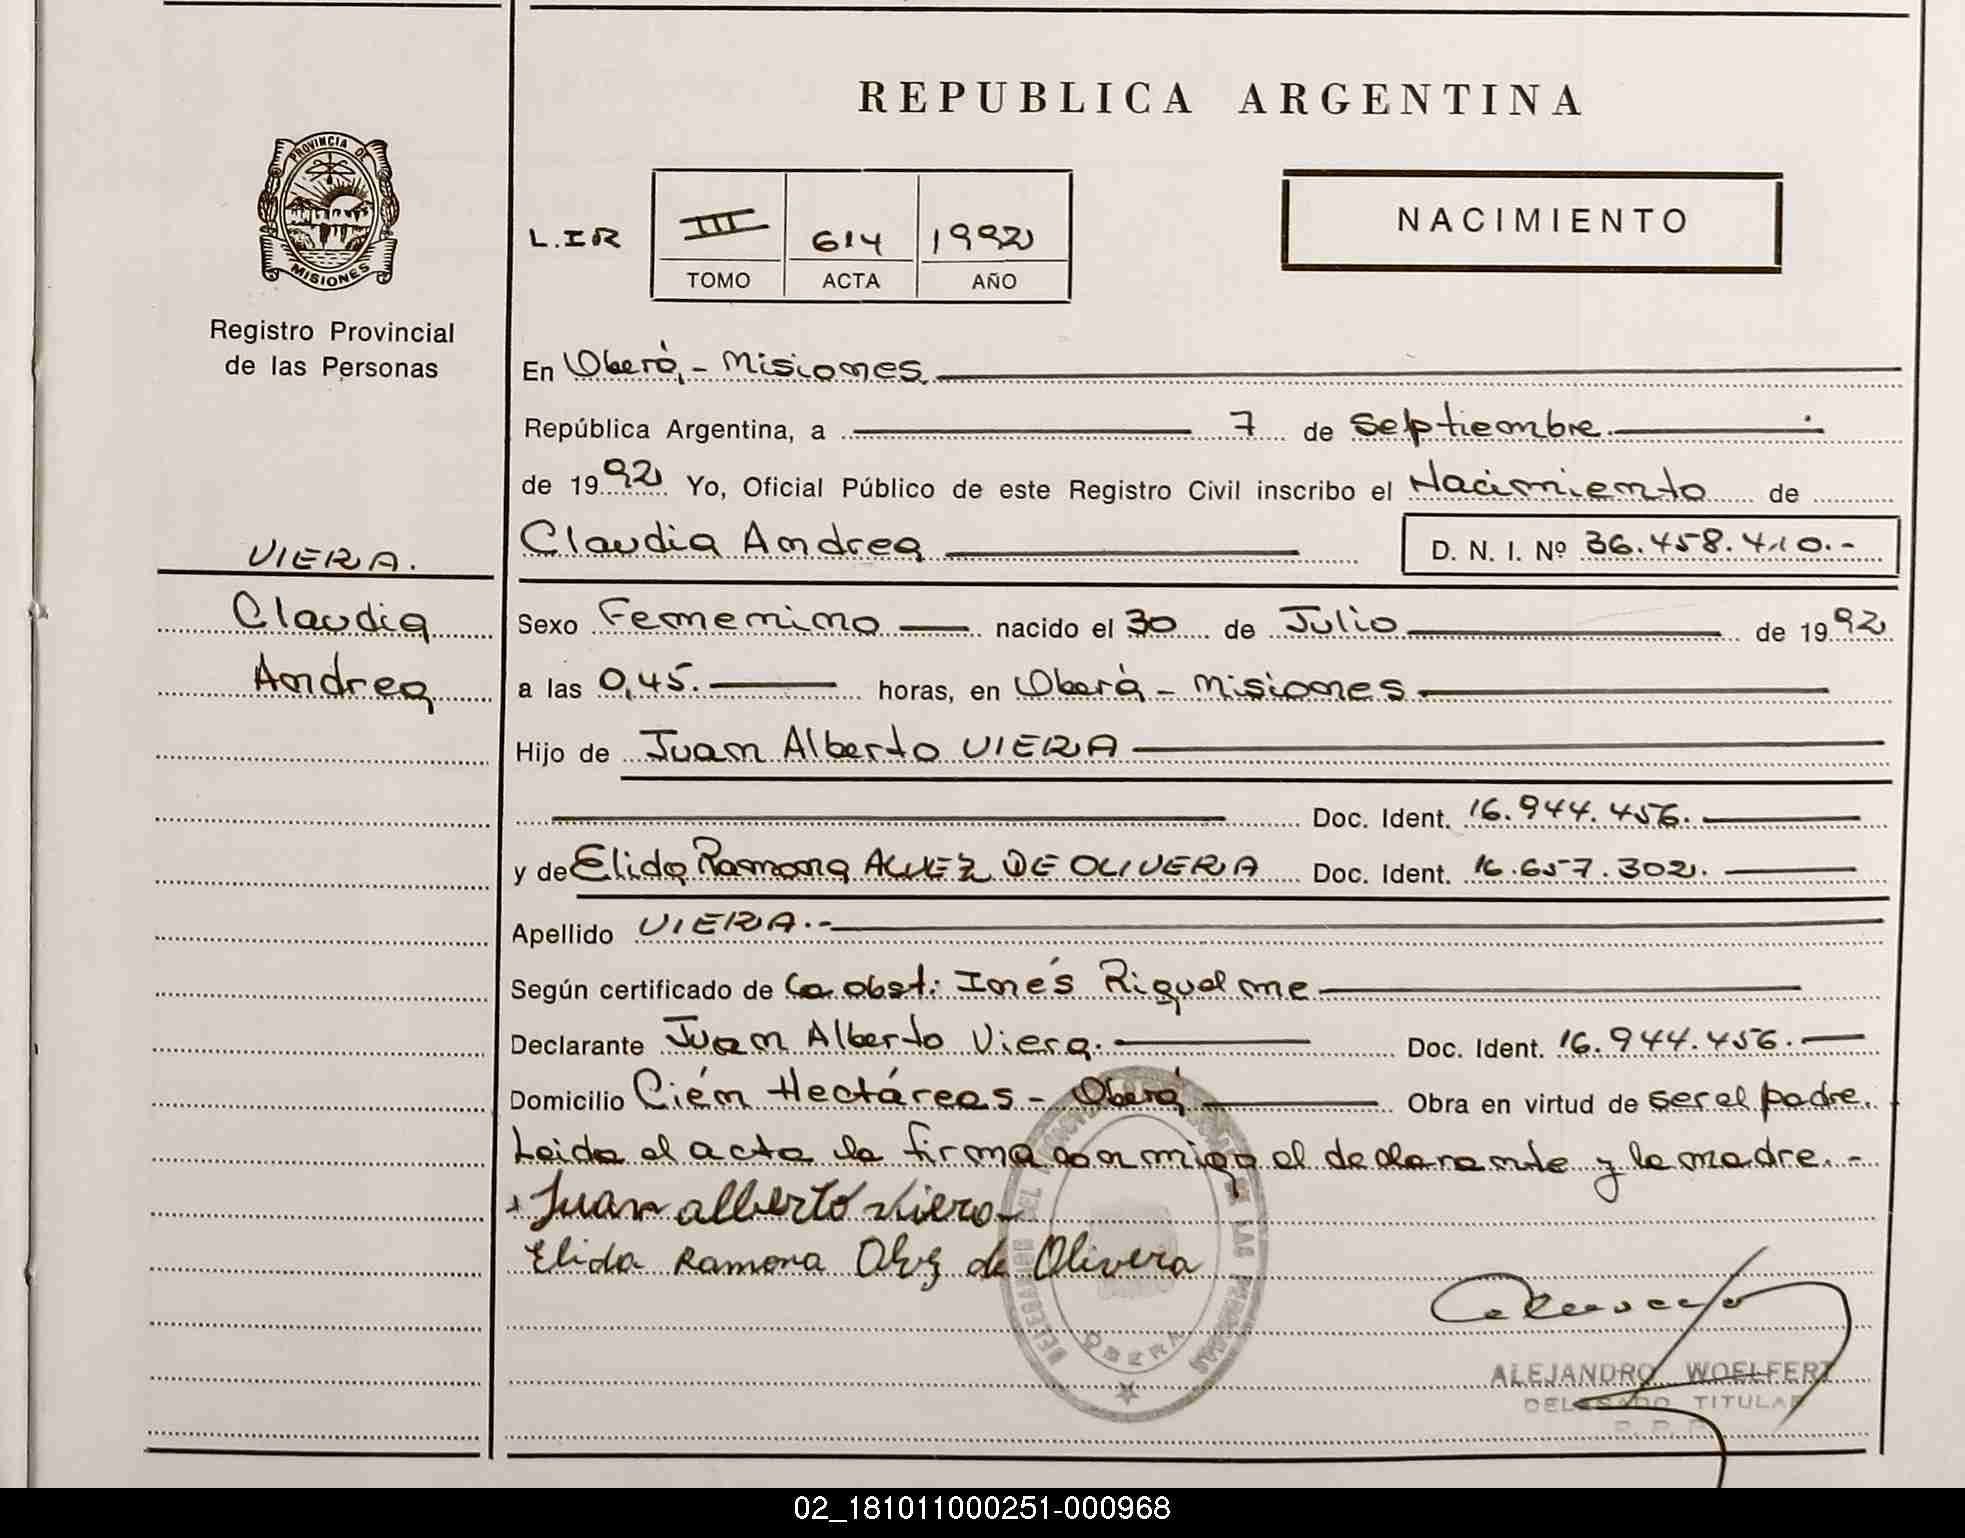 REPUBLICA ARGENTINA
PROVINCIA DE
MISIONES
Registro Provincial
de las Personas
L.IR
III 614 1992
TOMO ACTA AÑO
NACIMIENTO
En Oberá, - Misiones
República Argentina, a 7 de septiembre
de 1992 Yo, Oficial Público de este Registro Civil inscribo el Nacimiento de
Claudia Andrea D. N. I. Nº 36.458.410.-
VIERA.
Claudia
Andrea
Sexo Femenino nacido el 30 de Julio de 1992
a las 0,45. horas, en Oberá - Misiones
Hijo de Juan Alberto VIERA
Doc. Ident. 16.944.456.
y de Elida Ramona ALVEZ DE OLIVERA Doc. Ident. 16.657.302.
Apellido VIERA.-
Según certificado de la obst: Inés Riquelme
Declarante Juan Alberto Viera. Doc. Ident. 16.944.456.
Domicilio Cién Hectáreas - Oberá Obra en virtud de ser el padre.
Leida el acta la firma conmigo el declarante y la madre.-
Juan alberto viera
Elida Ramona Alvez de Olivera
OBERA
ALEJANDRO WOELFERT
DELEGADO TITULAR
02_181011000251-000968